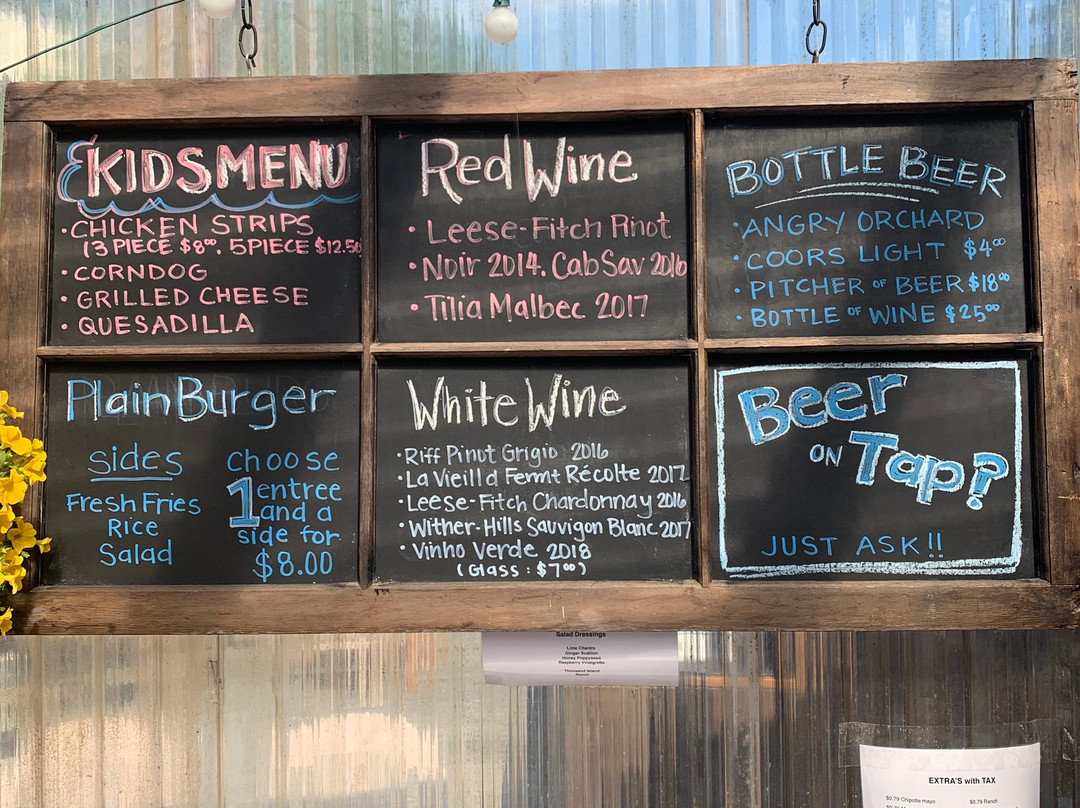 KIDS MENU
• CHICKEN STRIPS
(3 PIECE $8⁰⁰, 5 PIECE $12.50
• CORNDOG
• GRILLED CHEESE
• QUESADILLA
Plain Burger
sides
Fresh Fries
Rice
Salad
choose
1 entree
and a
side for
$8.00
Red Wine
• Leese-Fitch Pinot
• Noir 2014. Cab Sav 2016
• Tilia Malbec 2017
White Wine
• Riff Pinut Grigio 2016
• La Vieill d Fermt Récolte 2017
• Leese-Fitch Chardonnay 2016
• Wither-Hills Sauvigon Blanc 2017
• Vinho Verde 2018
(Glass: $7⁰⁰)
BOTTLE BEER
• ANGRY ORCHARD
• COORS LIGHT $4⁰⁰
• PITCHER OF BEER $18⁰⁰
• BOTTLE OF WINE $25⁰⁰
Beer
ON Tap?
JUST ASK!!
Salad Dressings
Lime Cilantro
Ginger Scallion
Honey Poppyseed
Raspberry Vinaigrette
Thousand Island
Ranch
EXTRA'S with TAX
$0.79 Chipotle mayo $0.79 Ranch